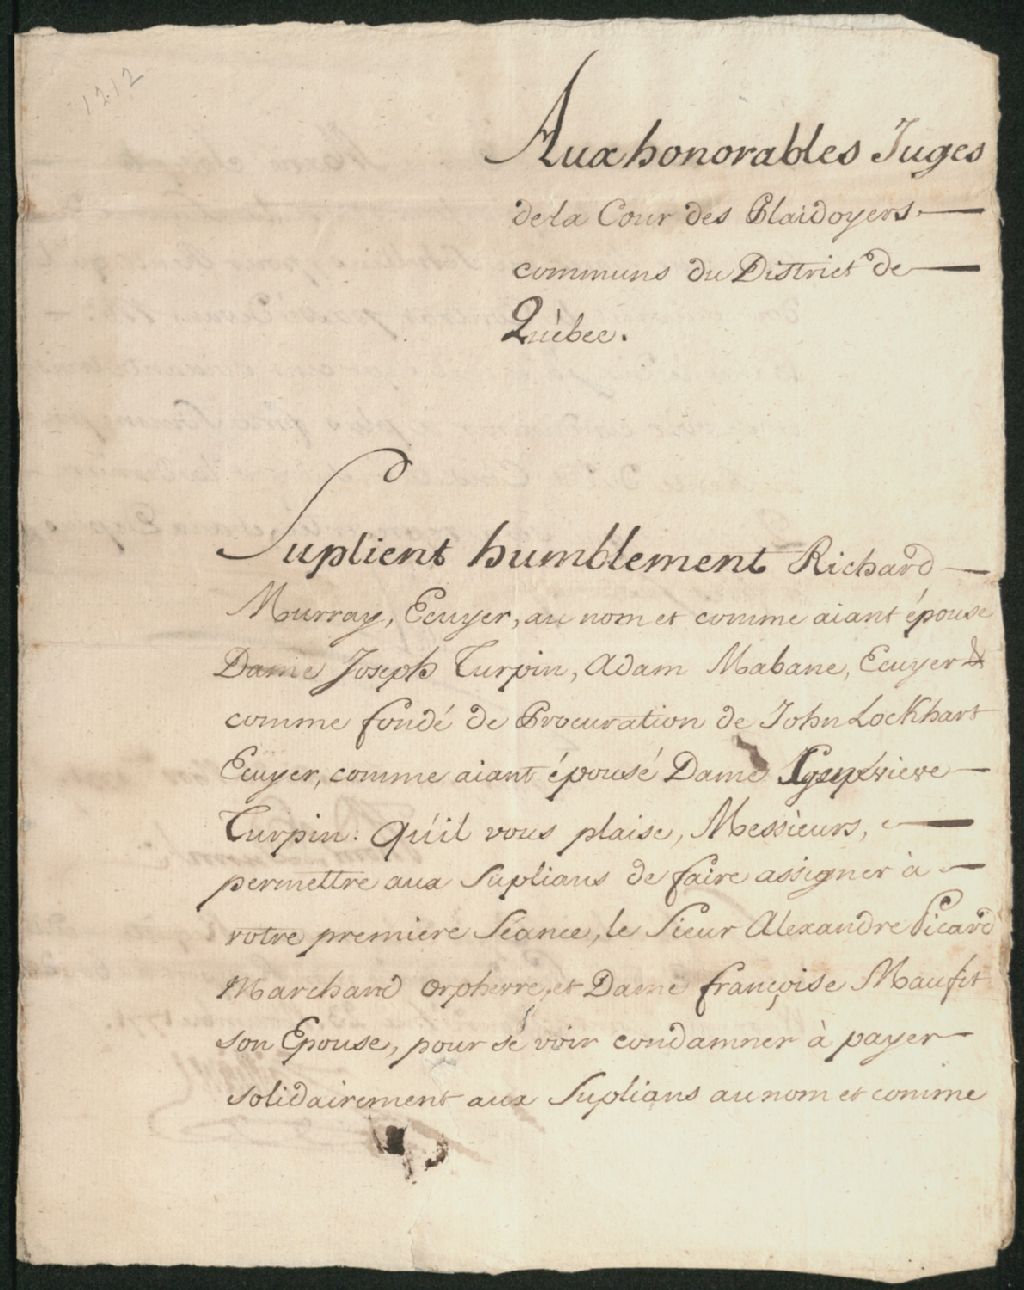 1212
Aux honorables Juges
de la Cour des Plaidoyers
communs du District de
Québec.
Suplient humblement Richard
Murray, Ecuyer, au nom et comme aiant épousé
Dame Joseph Turpin, Adam Mabane, Ecuyer &
comme fondé de Procuration de John Lockhart
Ecuyer, comme aiant épousé Dame
Turpin: Qu'il vous plaise, Messieurs,
permettre aux Suplians de faire assigner à
votre première Séance, le Sieur Alexandre Picard
Marchand Orphevre, et Dame françoise Maufit
son Epouse, pour se voir condamner à payer
solidairement aux Suplians au nom et comme